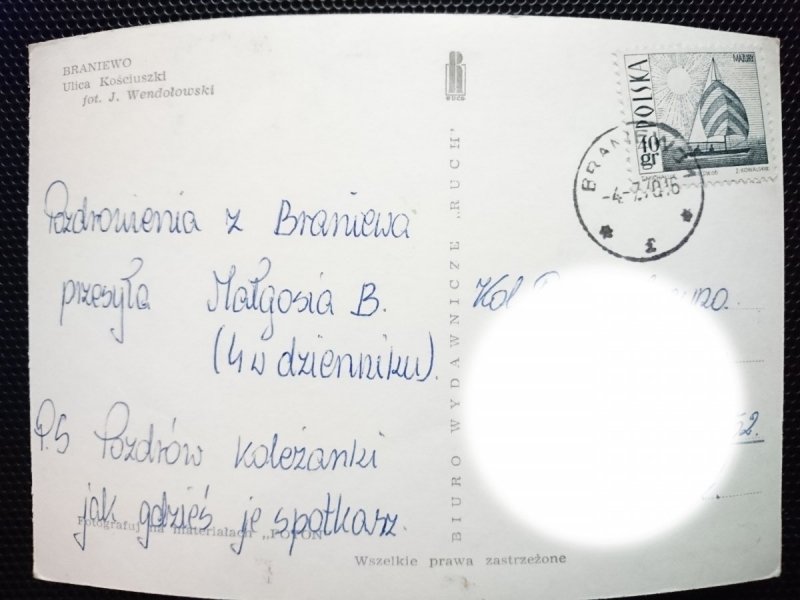 BRANIEWO
Ulica Kościuszki
fot. J. Wendołowski
RUCH
POLSKA
MAZURY
40 gr
Z. KOWALSKI
BRANIEWO
-4-7.70.16
* 3 *
Pozdrowienia z Braniewa
przesyła Małgosia B.
(4 w dzienniku).
P.S Pozdrów koleżanki
jak gdzieś je spotkarz.
Kol
52.
BIURO WYDAWNICZE „RUCH"
Fotografuj na materiałach „FOTON"
Wszelkie prawa zastrzeżone